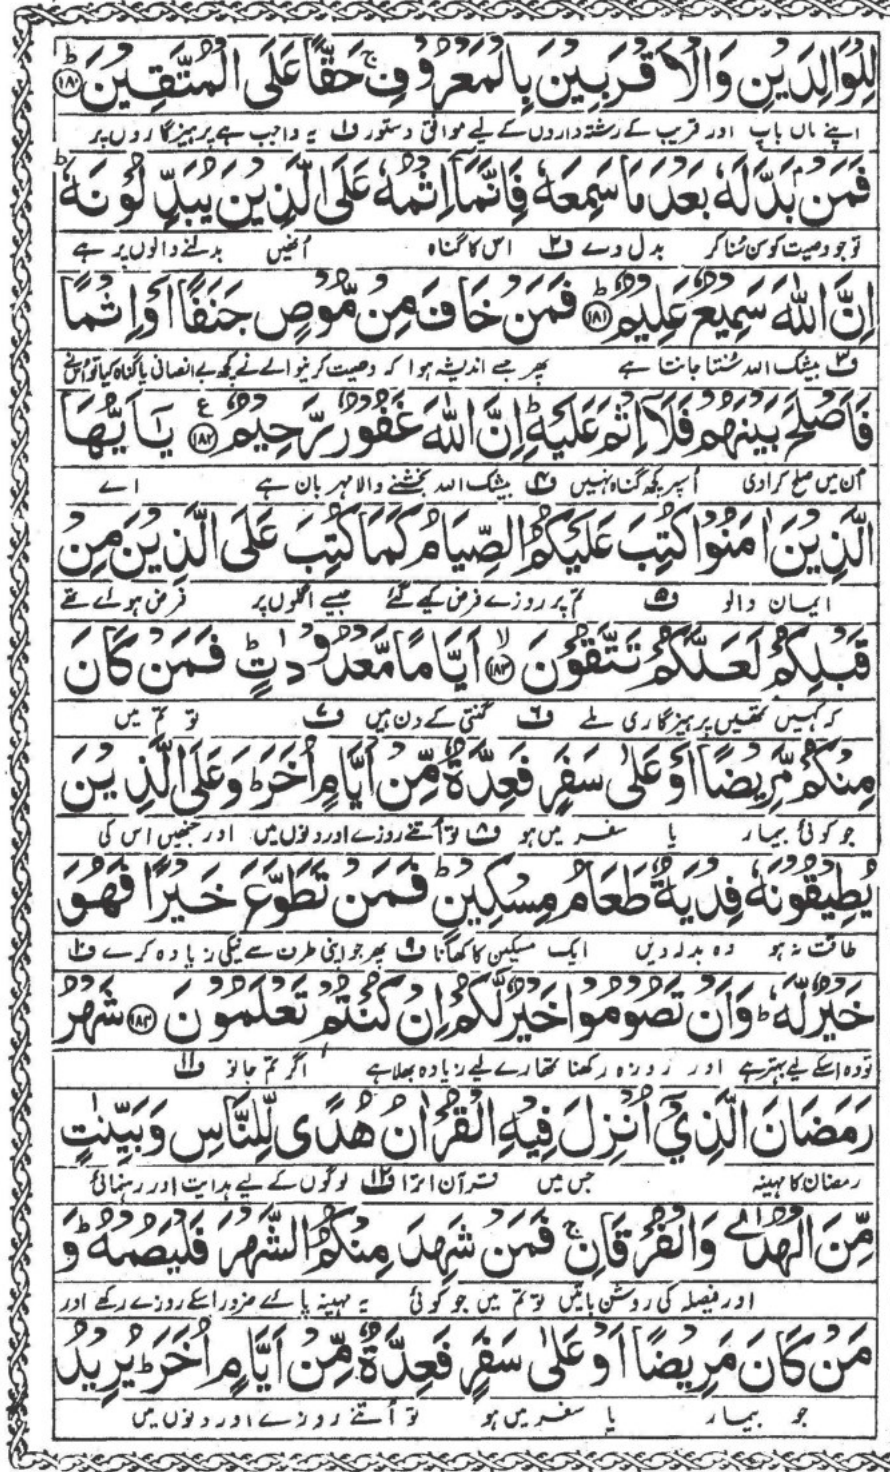 لِلْوَالِدَيْنِ وَالْاَقْرَبِيْنَ بِالْمَعْرُوْفِ ۚ حَقًّا عَلَى الْمُتَّقِيْنَ ؕ﴿۱۸۰﴾
اپنے ماں باپ اور قریب کے رشتہ داروں کے لیے موافق دستور ف۱ یہ واجب ہے پرہیزگاروں پر
فَمَنْۢ بَدَّلَهٗ بَعْدَ مَا سَمِعَهٗ فَاِنَّمَاۤ اِثْمُهٗ عَلَى الَّذِيْنَ يُبَدِّلُوْنَهٗ ؕ
تو جو وصیت کو سن سُنا کر بدل دے ف۲ اس کا گناہ اُنھیں بدلنے والوں پر ہے
اِنَّ اللّٰهَ سَمِيْعٌ عَلِيْمٌ ؕ﴿۱۸۱﴾ فَمَنْ خَافَ مِنْ مُّوْصٍ جَنَفًا اَوْ اِثْمًا
ف۳ بیشک اللہ سُنتا جانتا ہے پھر جسے اندیشہ ہوا کہ وصیت کرنیوالے نے کچھ بے انصافی یا گناہ کیا تو اُسنے
فَاَصْلَحَ بَيْنَهُمْ فَلَاۤ اِثْمَ عَلَيْهِ ؕ اِنَّ اللّٰهَ غَفُوْرٌ رَّحِيْمٌ ﴿۱۸۲﴾ ع يٰۤاَيُّهَا
اُن میں صلح کرادی اُسپر کچھ گناہ نہیں ف۴ بیشک اللہ بخشنے والا مہربان ہے اے
الَّذِيْنَ اٰمَنُوْا كُتِبَ عَلَيْكُمُ الصِّيَامُ كَمَا كُتِبَ عَلَى الَّذِيْنَ مِنْ
ایمان والو ف۵ تم پر روزے فرض کیے گئے جیسے اگلوں پر فرض ہوئے تھے
قَبْلِكُمْ لَعَلَّكُمْ تَتَّقُوْنَ ۙ﴿۱۸۳﴾ اَيَّامًا مَّعْدُوْدٰتٍ ؕ فَمَنْ كَانَ
کہ کہیں تمھیں پرہیزگاری ملے ف۶ گنتی کے دن ہیں ف۷ تو تم میں
مِنْكُمْ مَّرِيْضًا اَوْ عَلٰى سَفَرٍ فَعِدَّةٌ مِّنْ اَيَّامٍ اُخَرَ ؕ وَعَلَى الَّذِيْنَ
جو کوئی بیمار یا سفر میں ہو ف۸ تو اُتنے روزے اور دنوں میں اور جنھیں اس کی
يُطِيْقُوْنَهٗ فِدْيَةٌ طَعَامُ مِسْكِيْنٍ ؕ فَمَنْ تَطَوَّعَ خَيْرًا فَهُوَ
طاقت نہ ہو وہ بدلہ دیں ایک مسکین کا کھانا ف۹ پھر جو اپنی طرف سے نیکی زیادہ کرے ف۱۰
خَيْرٌ لَّهٗ ؕ وَاَنْ تَصُوْمُوْا خَيْرٌ لَّكُمْ اِنْ كُنْتُمْ تَعْلَمُوْنَ ﴿۱۸۴﴾ شَهْرُ
تو وہ اسکے لیے بہتر ہے اور روزہ رکھنا تمھارے لیے زیادہ بھلا ہے اگر تم جانو ف۱۱
رَمَضَانَ الَّذِيْۤ اُنْزِلَ فِيْهِ الْقُرْاٰنُ هُدًى لِّلنَّاسِ وَبَيِّنٰتٍ
رمضان کا مہینہ جس میں قرآن اترا ف۱۲ لوگوں کے لیے ہدایت اور رہنمائی
مِّنَ الْهُدٰى وَالْفُرْقَانِ ۚ فَمَنْ شَهِدَ مِنْكُمُ الشَّهْرَ فَلْيَصُمْهُ ؕ وَ
اور فیصلہ کی روشن باتیں تو تم میں جو کوئی یہ مہینہ پائے ضرور اسکے روزے رکھے اور
مَنْ كَانَ مَرِيْضًا اَوْ عَلٰى سَفَرٍ فَعِدَّةٌ مِّنْ اَيَّامٍ اُخَرَ ؕ يُرِيْدُ
جو بیمار یا سفر میں ہو تو اُتنے روزے اور دنوں میں